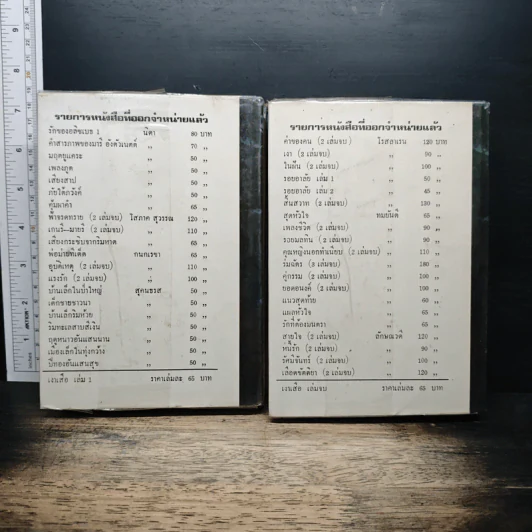 รายการหนังสือที่ออกจำหน่ายแล้ว
รักของอลิซเบธ 1 นิดา 80 บาท
คำสารภาพของมารี อังตัวเนตต์ ,, 70 ,,
มฤตยูแดระ ,, 65 ,,
เพลงภูต ,, 65 ,,
เสียงสาป ,, 65 ,,
ภัยใต้ภวังค์ ,, 65 ,,
คุ้มผาคำ ,, 65 ,,
ฟ้าจรดทราย (2 เล่มจบ) โสภาค สุวรรณ 120 ,,
เกนรี-มายรี (2 เล่มจบ) ,, 110 ,,
เสียงกระซิบจากริมหาด ,, 65 ,,
พ่อม่ายทีเด็ด กนกเรขา 65 ,,
อุบัติเหตุ (2 เล่มจบ) ,, 110 ,,
แรงรัก (2 เล่มจบ) ,, 100 ,,
บ้านเล็กในป่าใหญ่ สุคนธรส 50 ,,
เด็กชายชาวนา ,, 50 ,,
บ้านเล็กริมห้วย ,, 50 ,,
ริมทะเลสาบสีเงิน ,, 50 ,,
ฤดูหนาวอันแสนนาน ,, 50 ,,
เมืองเล็กในทุ่งกว้าง ,, 50 ,,
ปีทองอันแสนสุข ,, 50 ,,
เงนเสือ เล่ม 1 ราคาเล่มละ 65 บาท
รายการหนังสือที่ออกจำหน่ายแล้ว
ค่าของคน (2 เล่มจบ) โรสลาเรน 120 บาท
เงา (2 เล่มจบ) ,, 90 ,,
ในฝัน (2 เล่มจบ) ,, 100 ,,
รอยอาลัย เล่ม 1 ,, 50 ,,
รอยอาลัย เล่ม 2 ,, 45 ,,
สิ้นสวาท (2 เล่มจบ) ,, 120 ,,
สุดหัวใจ ทมยันตี 65 ,,
เพลงชีวิต (2 เล่มจบ) ,, 90 ,,
รอยมลทิน (2 เล่มจบ) ,, 90 ,,
คุณหญิงนอกทำเนียบ (2 เล่มจบ) ,, 110 ,,
ร่มฉัตร (2 เล่มจบ) ,, 180 ,,
คู่กรรม (2 เล่มจบ) ,, 100 ,,
ยอดอนงค์ (2 เล่มจบ) ,, 100 ,,
แนวสุดท้าย ,, 65 ,,
แผลหัวใจ ,, 65 ,,
รักที่ต้องมนตรา ,, 65 ,,
สายใจ (2 เล่มจบ) ลักษณวดี 120 ,,
หนี้รัก (2 เล่มจบ) ,, 90 ,,
รัศมีจันทร์ (2 เล่มจบ) ,, 100 ,,
เลือดขัตติยา (2 เล่มจบ) ,, 120 ,,
เงนเสือ เล่มจบ ราคาเล่มละ 65 บาท